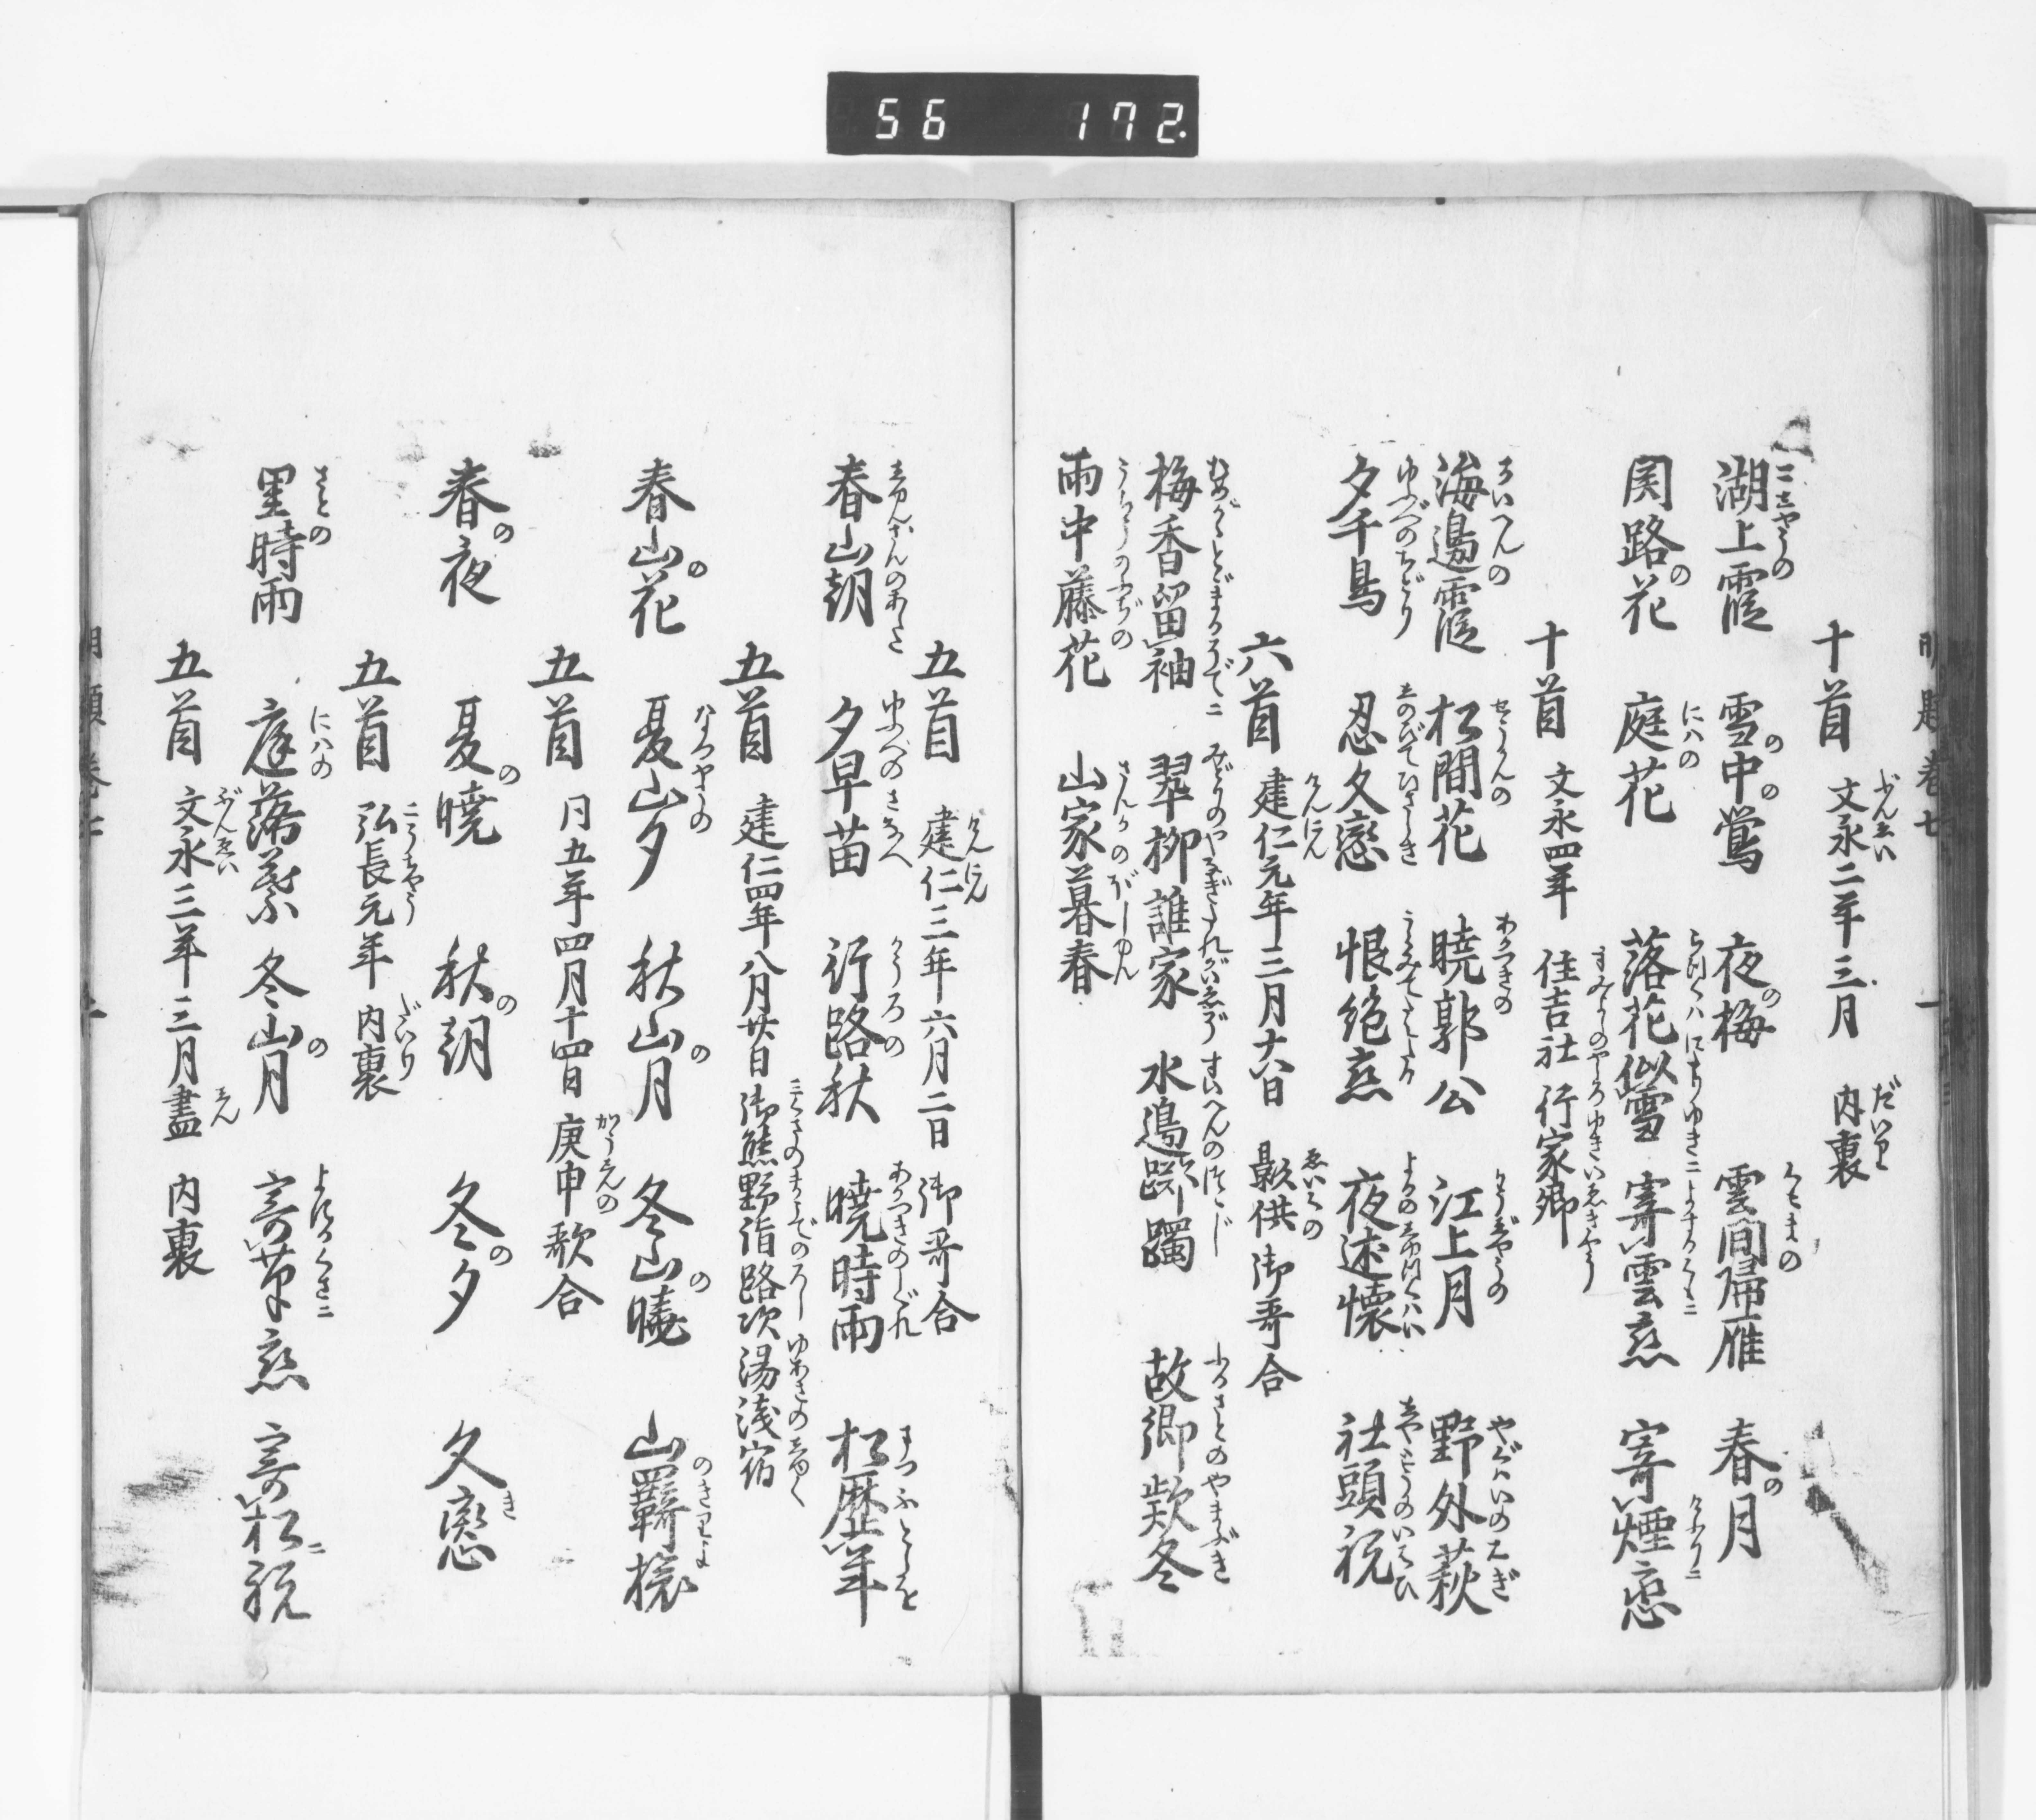 56 172.
十首 文永二年三月 内裏
湖上霞 雪中鶯 夜梅 雲間帰雁 春月
関路花 庭花 落花似雪 寄雲恋 寄煙恋
十首 文永四年 住吉社 行家卿
海邊霞 松間花 暁郭公 江上月 野外萩
夕千鳥 忍久戀 恨絶恋 夜述懐 社頭祝
六首 建仁元年三月十六日 影供御哥合
梅香留袖 翠柳誰家 水邊躑躅 故郷款冬
雨中藤花 山家暮春
五首 建仁三年六月二日 御哥合
春山朝 夕早苗 行路秋 暁時雨 松歴年
五首 建仁四年八月廿日 御熊野詣路次湯浅宿
春山花 夏山夕 秋山月 冬山暁 山羇旅
五首 同五年四月十四日 庚申歌合
春夜 夏暁 秋朝 冬夕 久戀
五首 弘長元年 内裏
里時雨 庭落葉 冬山月 寄草恋 寄松祝
五首 文永三年三月盡 内裏